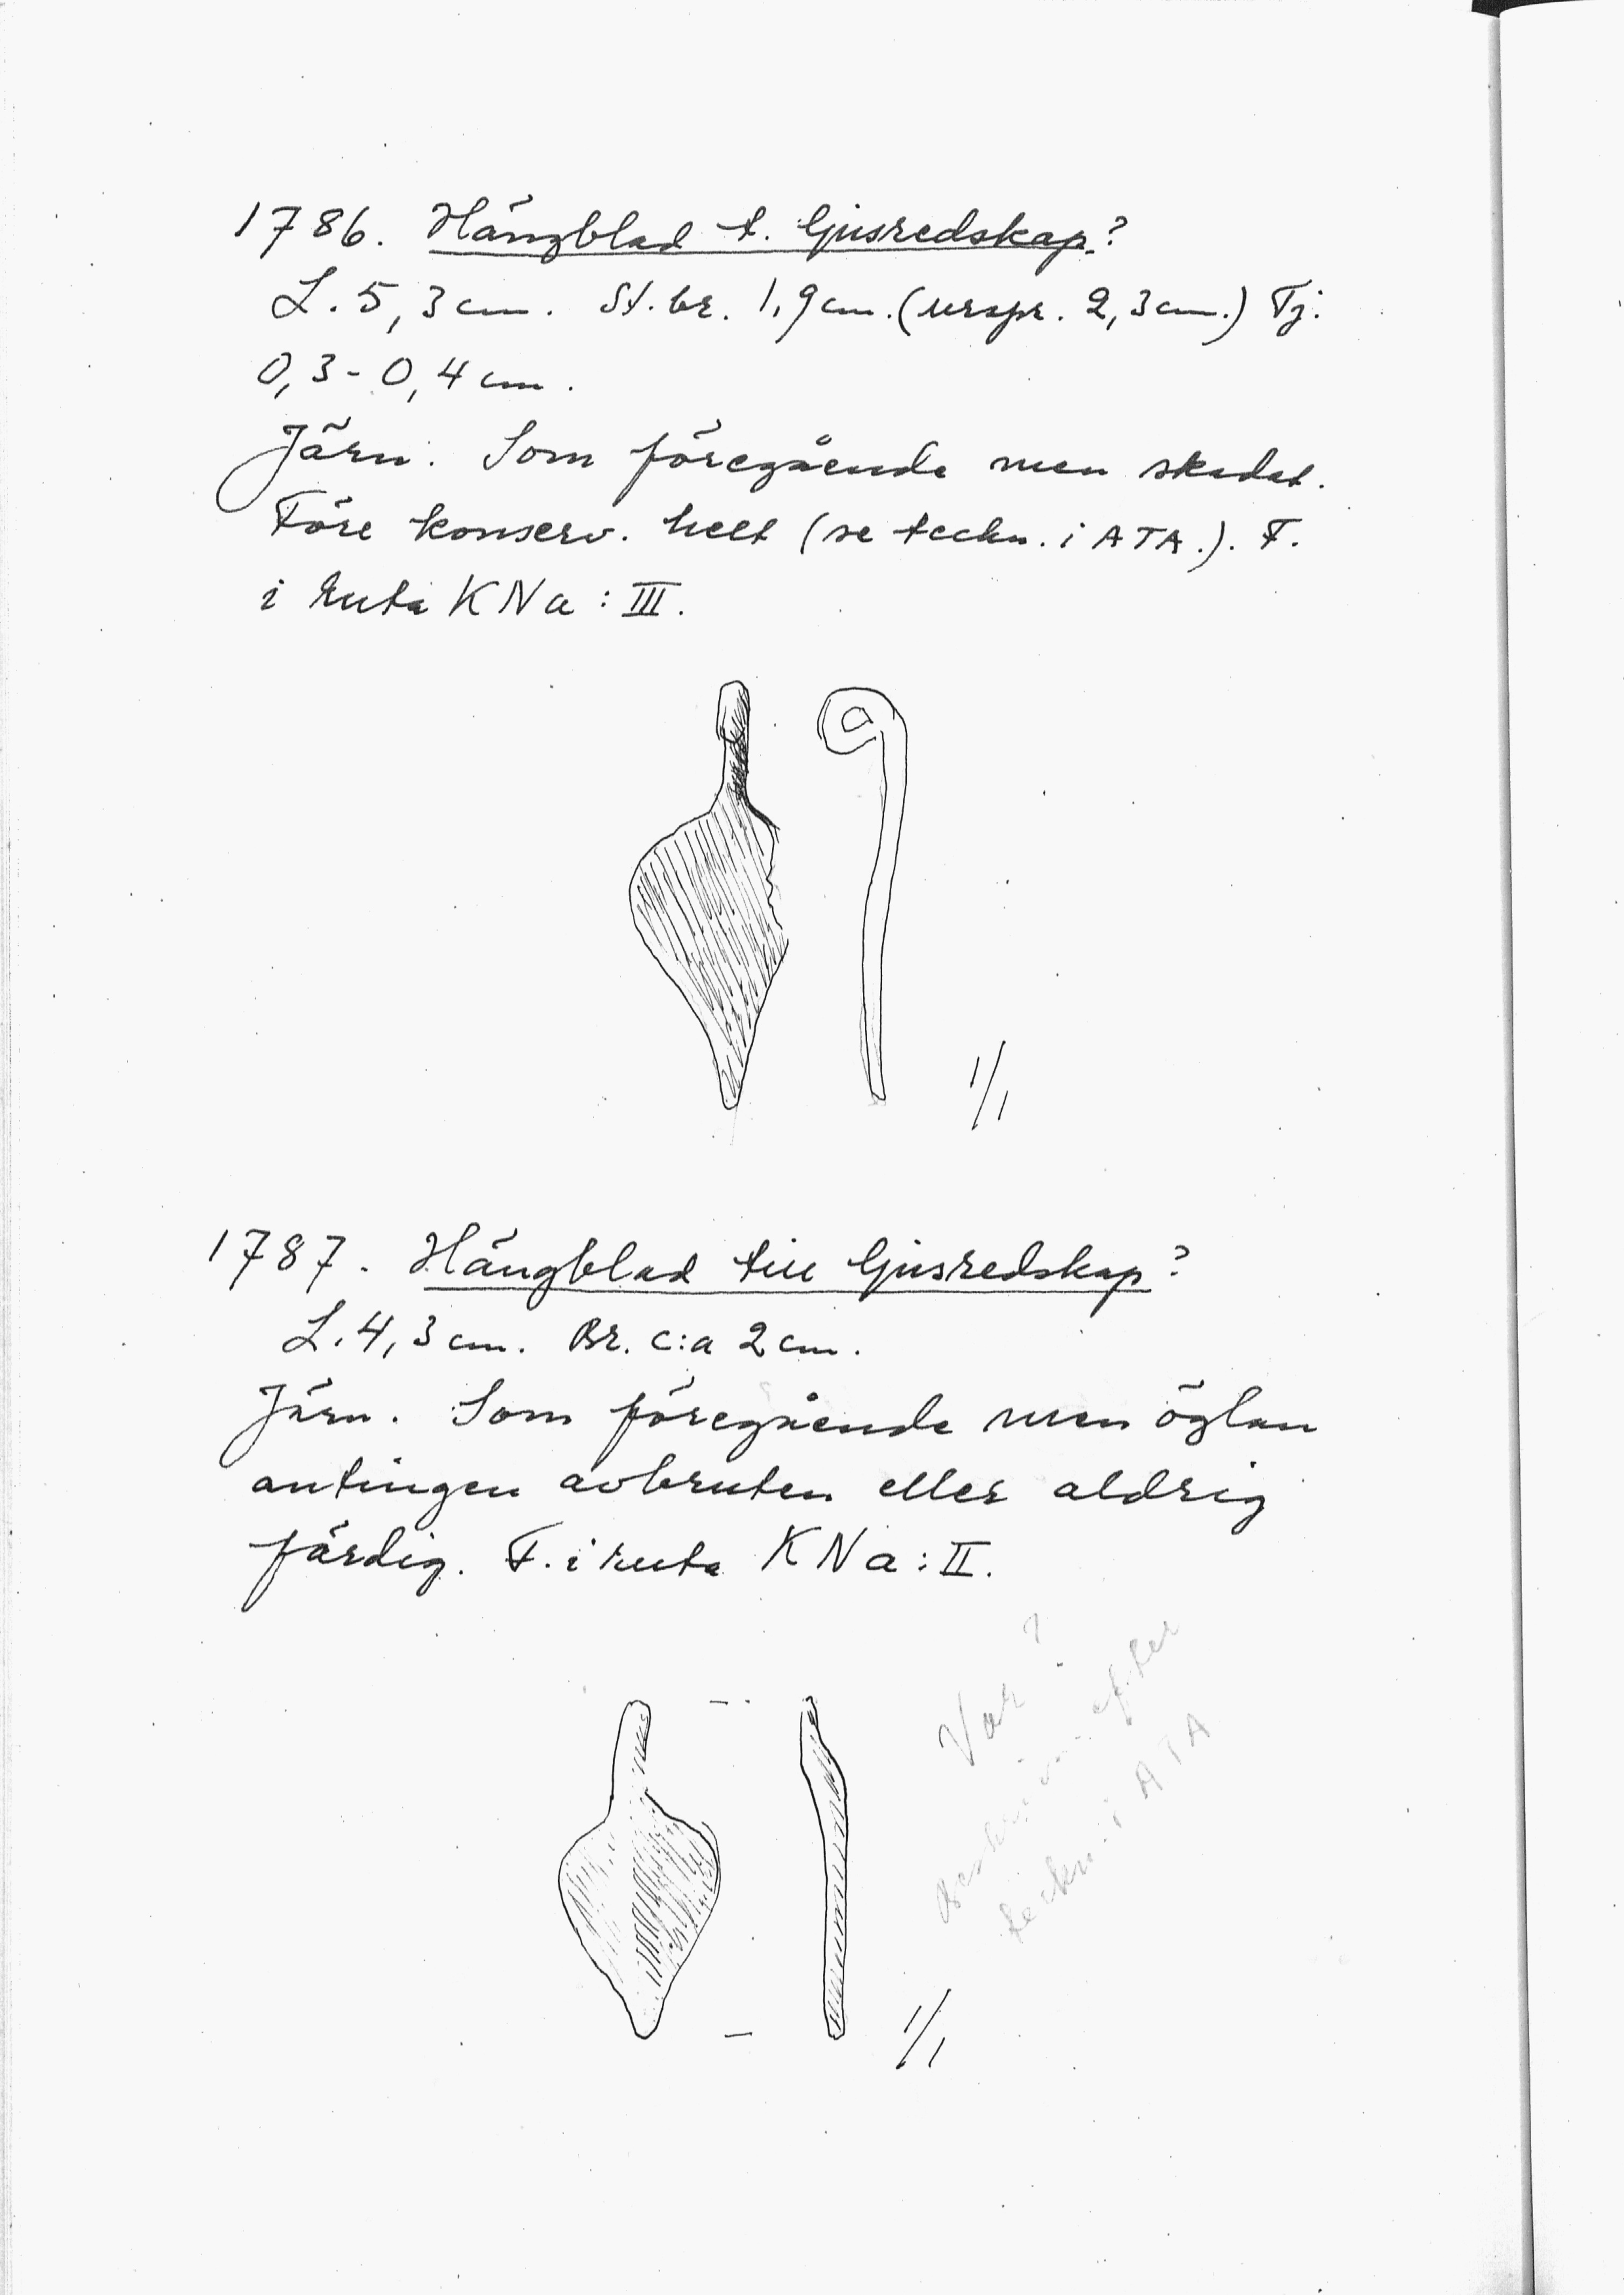 1786. Hängblad t. ljusredskap?
L. 5,3 cm. St. br. 1,9 cm. (urspr. 2,3 cm.) Tj.
0,3-0,4 cm.
Järn. Som föregående men skadat.
Före konserv. helt (se teckn. i ATA.). F.
i ruta KNa: III.
1/1
1787. Hängblad till ljusredskap?
L. 4,3 cm. Br. c:a 2 cm.
Järn. Som föregående men öglan
antingen avbruten eller aldrig
färdig. F. i ruta KNa: II.
Var?
efter
teckn. i ATA
1/1